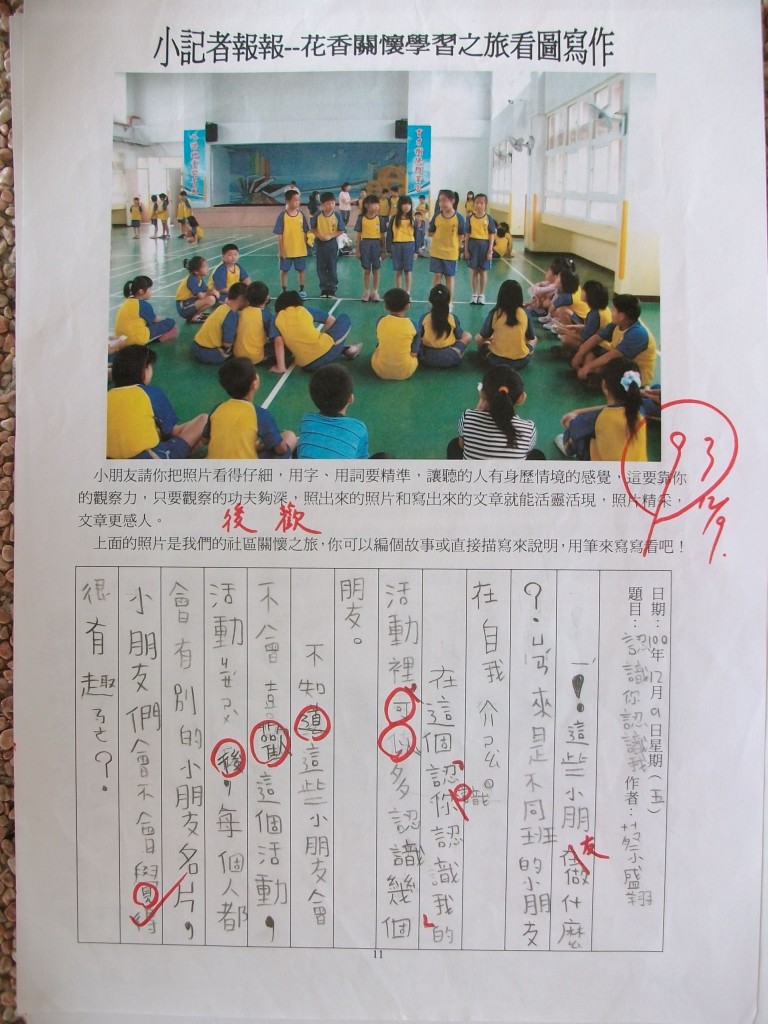 小記者報報--花香關懷學習之旅看圖寫作
小朋友請你把照片看得仔細，用字、用詞要精準，讓聽的人有身歷情境的感覺，這要靠你
的觀察力，只要觀察的功夫夠深，照出來的照片和寫出來的文章就能活靈活現，照片精采，
文章更感人。
後 歡
上面的照片是我們的社區關懷之旅，你可以編個故事或直接描寫來說明，用筆來寫寫看吧！
93
12/9
日期：100年12月9日星期（五）
題目：認識你認識我 作者：小盛翔
！這些小朋友在做什麼
？ㄩㄢ來是不同班的小朋友
在自我介ㄕㄠ。
在這個認識你認識我的
活動裡，可以多認識幾個
朋友。
不知道這些小朋友會
不會喜歡這個活動，
活動ㄐㄝㄕㄨ後，每個人都
會有別的小朋友名片，
小朋友們會不會覺得
很有趣ㄋㄜ？
11